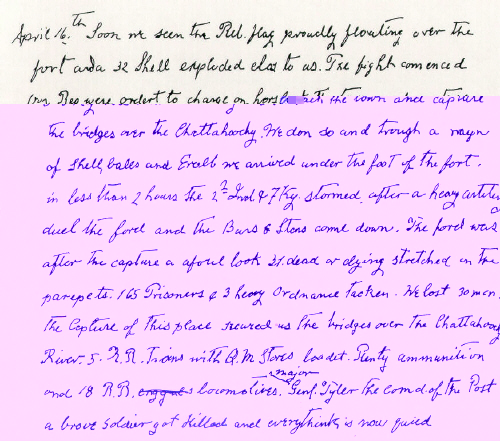 April 16.th Soon we seen the Reb. flag proudly floating over the
fort and a 32 Shell exploded close to us. The fight comenced
our Beo. were ordert to charge on horse the town and capture
the bridges over the Chattahoochy. We don so and trough a rayn
of Shell, bales and we arrived under the foot of the fort.
in less than 2 hours the 2.d Ind & 7 Ky. stormed, after a heavy artilery
duel the ford and the Bars & Stars come down. The ford was
after the capture a afoul look 31 dead or dying stretched on the
parepets. 165 Prisoners & 3 heavy Ordnance tacken. We lost 30 men.
the Capture of this place secured us the bridges over the Chattahoochy
River. 5. R.R. Trains with Q.M. Stores loadet. Plenty ammunition
and 18 R.R. locomotives. major Genl. Tyler the comd of the Post
a brave Soldier got killed and everythink is now quied